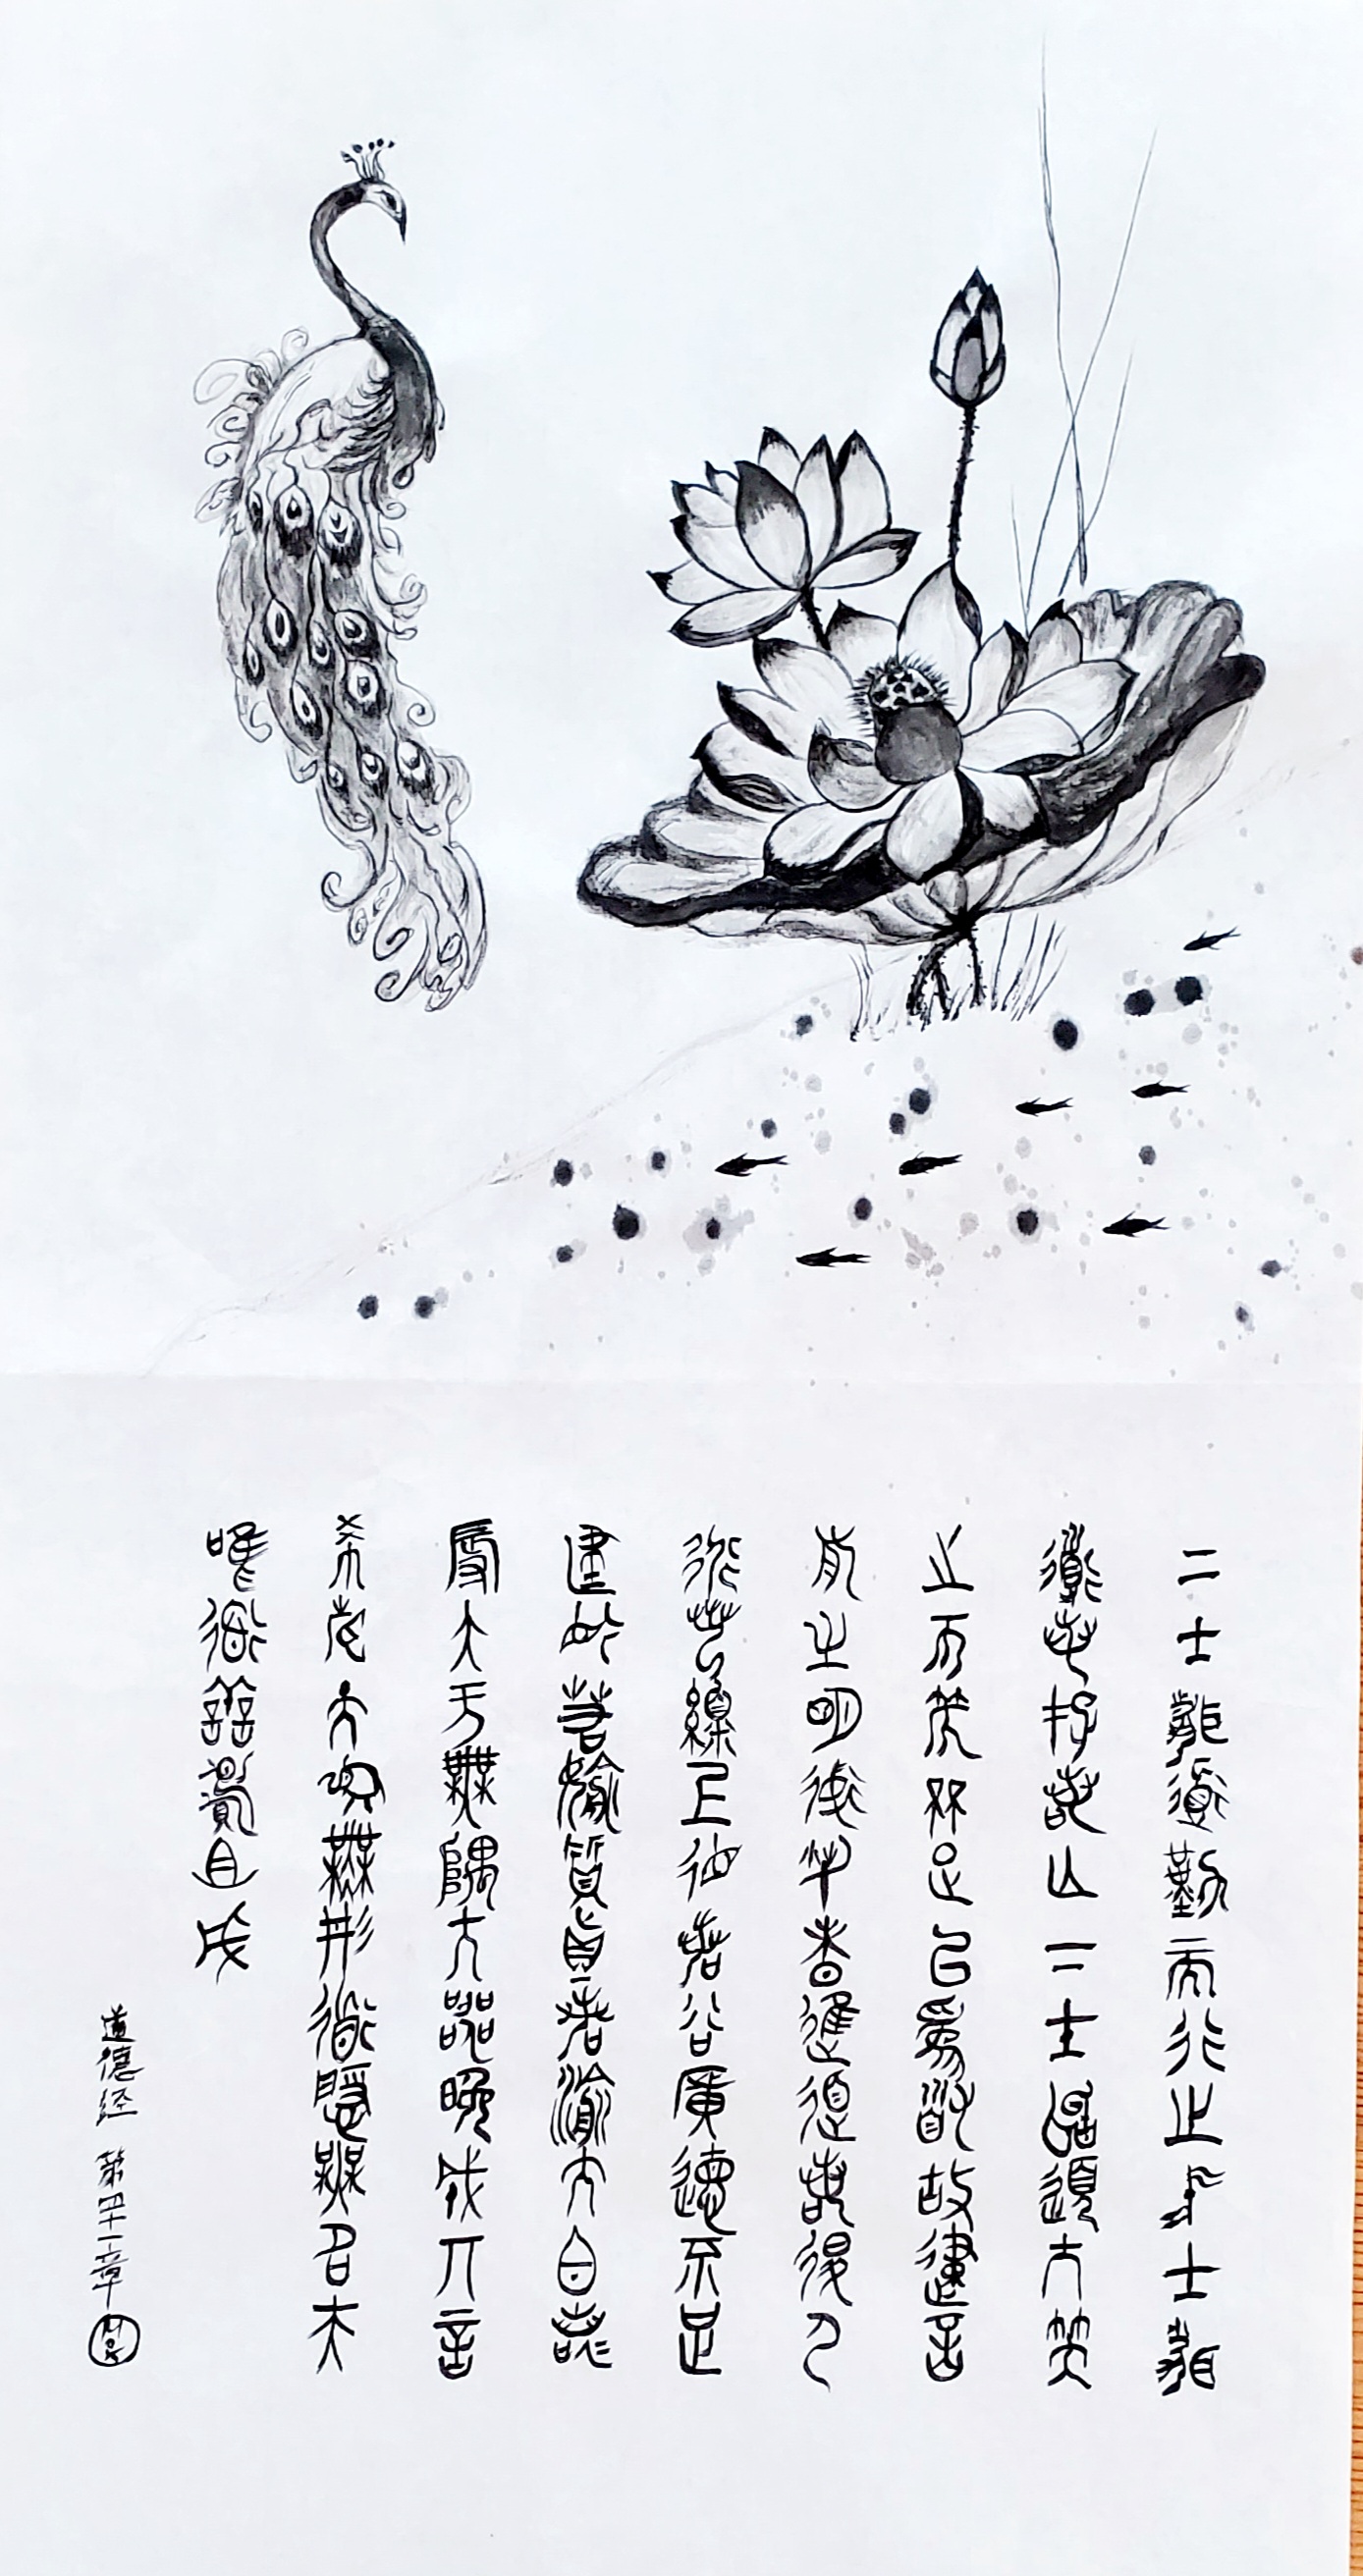 上士聞道勤而行之中士聞
道若存若亡下士聞道大笑
之不笑不足以為道故建言
有之明道若昧進道若退夷
道若纇上德若谷廣德不足
建若偷質真若渝大白若
辱大方無隅大器晚成大音
希聲大象無形道隱無名夫
唯道善貸且成
道德经 第四十一章